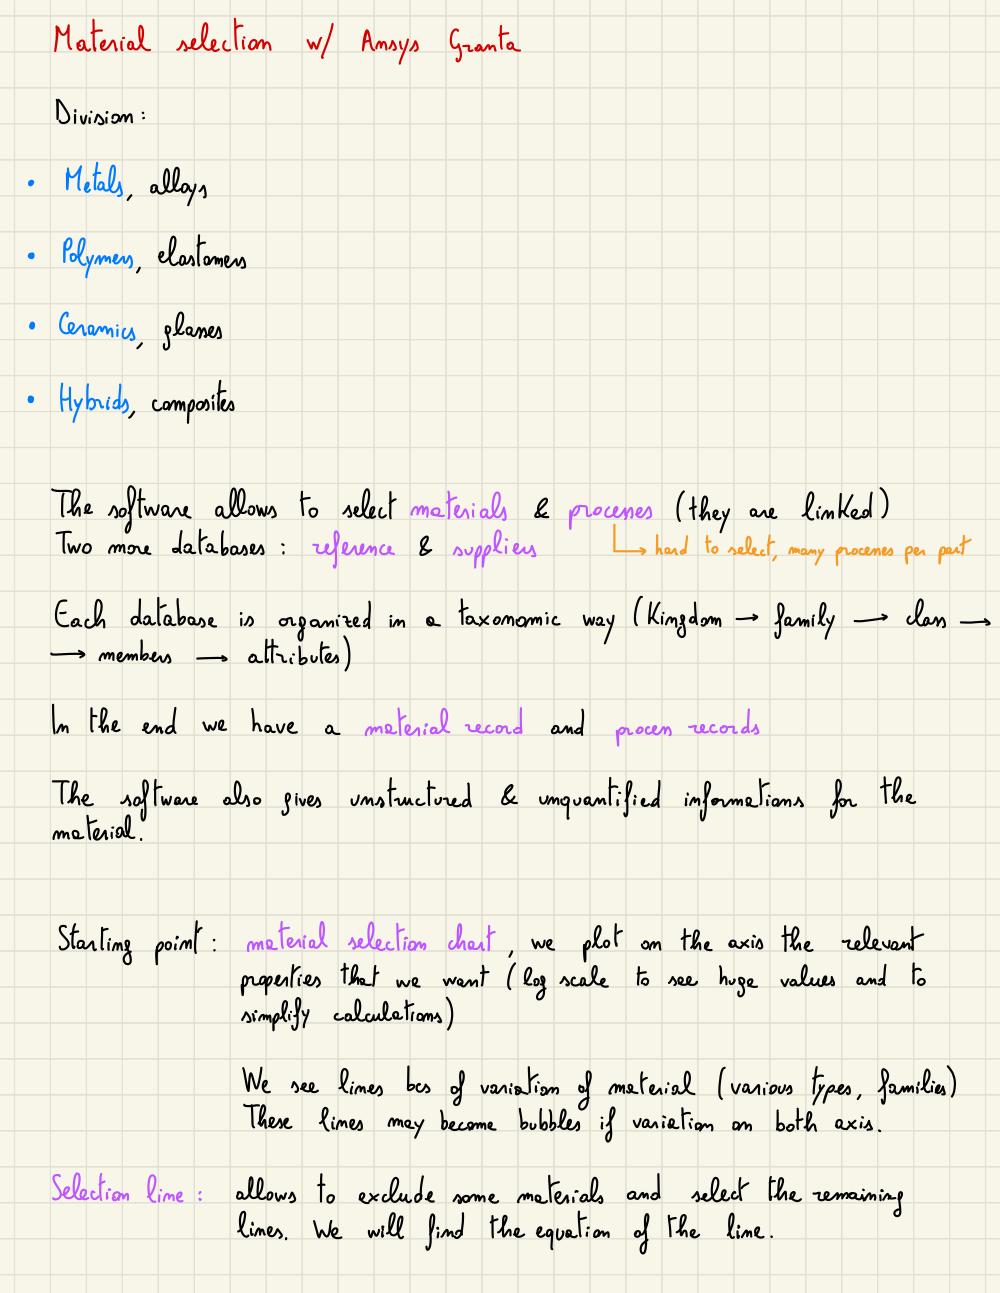 Material selection w/ Ansys Granta
Division:
• Metals, alloys
• Polymers, elastomers
• Ceramics, glasses
• Hybrids, composites
The software allows to select materials & processes (they are linked)
Two more databases: reference & suppliers
↳ hard to select, many processes per part
Each database is organized in a taxonomic way (Kingdom → family → class →
→ members → attributes)
In the end we have a material record and process records
The software also gives unstructured & unquantified informations for the
material.
Starting point: material selection chart, we plot on the axis the relevant
properties that we want (log scale to see huge values and to
simplify calculations)
We see lines bcs of variation of material (various types, families)
These lines may become bubbles if variation on both axis.
Selection line: allows to exclude some materials and select the remaining
lines. We will find the equation of the line.